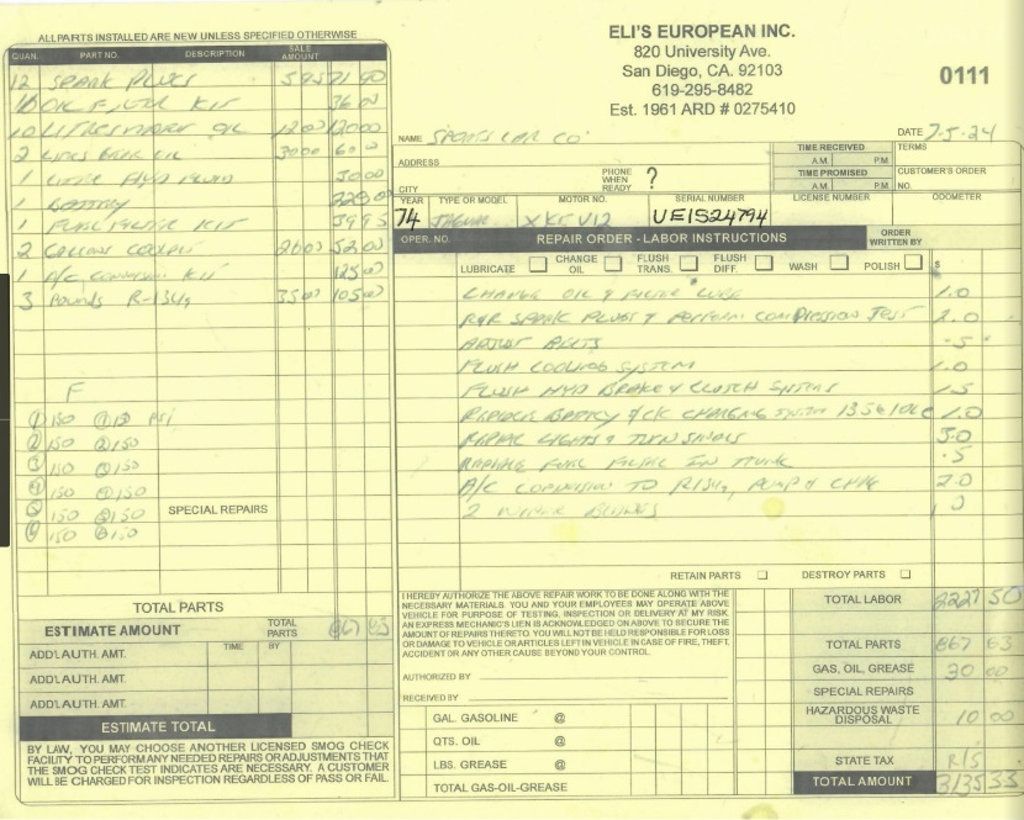 ALL PARTS INSTALLED ARE NEW UNLESS SPECIFIED OTHERWISE
QUAN. PART NO. DESCRIPTION SALE AMOUNT
12 SPARK PLUGS 595 71 40
OIL FILTER KIT 36 00
10 LITRES MOTOR OIL 1200 12000
2 LITRES BRAKE OIL 3000 60
1 LITRE HYD FLUID 3000
1 BATTERY
1 FUEL FILTER KIT 3995
2 GALLONS COOLANT 2600 52.00
1 A/C CONVERSION KIT 12500
3 POUNDS R-134a 3500 10500
F
① 150 ① 150 PSI
② 150 ② 150
③ 150 ③ 150
④ 150 ④ 150
⑤ 150 ⑤ 150 SPECIAL REPAIRS
⑥ 150 ⑥ 150
TOTAL PARTS
ESTIMATE AMOUNT TOTAL PARTS 867 63
TIME BY
ADD'L AUTH. AMT.
ADD'L AUTH. AMT.
ADD'L AUTH. AMT.
ESTIMATE TOTAL
BY LAW, YOU MAY CHOOSE ANOTHER LICENSED SMOG CHECK
FACILITY TO PERFORM ANY NEEDED REPAIRS OR ADJUSTMENTS THAT
THE SMOG CHECK TEST INDICATES ARE NECESSARY. A CUSTOMER
WILL BE CHARGED FOR INSPECTION REGARDLESS OF PASS OR FAIL.
ELI'S EUROPEAN INC.
820 University Ave.
San Diego, CA. 92103
619-295-8482
Est. 1961 ARD # 0275410
0111
NAME SPORTS CAR CO DATE 7-5-24
ADDRESS TIME RECEIVED TERMS
A.M. P.M.
CITY PHONE WHEN READY ? TIME PROMISED CUSTOMER'S ORDER NO.
A.M. P.M.
YEAR TYPE OR MODEL MOTOR NO. SERIAL NUMBER LICENSE NUMBER ODOMETER
74 JAGUAR XKE V12 UE1S24794
OPER. NO. REPAIR ORDER - LABOR INSTRUCTIONS ORDER WRITTEN BY
LUBRICATE CHANGE OIL FLUSH TRANS. FLUSH DIFF. WASH POLISH $
CHANGE OIL & FILTER LUBE 1.0
R&R SPARK PLUGS & PERFORM COMPRESSION TEST 2.0
ADJUST BELTS .5
FLUSH COOLING SYSTEM 1.0
FLUSH HYD BRAKE & CLUTCH SYSTEMS 1.5
REPLACE BATTERY & C/C CHARGING SYSTEM 1.0
REPAIR LIGHTS & TURN SIGNALS
REPLACE FUEL FILTER IN TRUNK .5
A/C CONVERSION TO R134a, PUMP & CHG 2.0
2 WIPER BLADES
RETAIN PARTS DESTROY PARTS
I HEREBY AUTHORIZE THE ABOVE REPAIR WORK TO BE DONE ALONG WITH THE
NECESSARY MATERIALS. YOU AND YOUR EMPLOYEES MAY OPERATE ABOVE
VEHICLE FOR PURPOSE OF TESTING, INSPECTION OR DELIVERY AT MY RISK.
AN EXPRESS MECHANIC'S LIEN IS ACKNOWLEDGED ON ABOVE TO SECURE THE
AMOUNT OF REPAIRS THERETO. YOU WILL NOT BE HELD RESPONSIBLE FOR LOSS
OR DAMAGE TO VEHICLE OR ARTICLES LEFT IN VEHICLE IN CASE OF FIRE, THEFT,
ACCIDENT OR ANY OTHER CAUSE BEYOND YOUR CONTROL.
AUTHORIZED BY
RECEIVED BY
GAL. GASOLINE @
QTS. OIL @
LBS. GREASE @
TOTAL GAS-OIL-GREASE
TOTAL LABOR 2227 50
TOTAL PARTS 867 63
GAS, OIL, GREASE 30 00
SPECIAL REPAIRS
HAZARDOUS WASTE DISPOSAL 10 00
STATE TAX R/S
TOTAL AMOUNT 3135